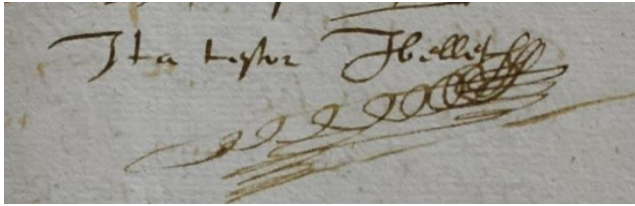 Ita testor Jbelles